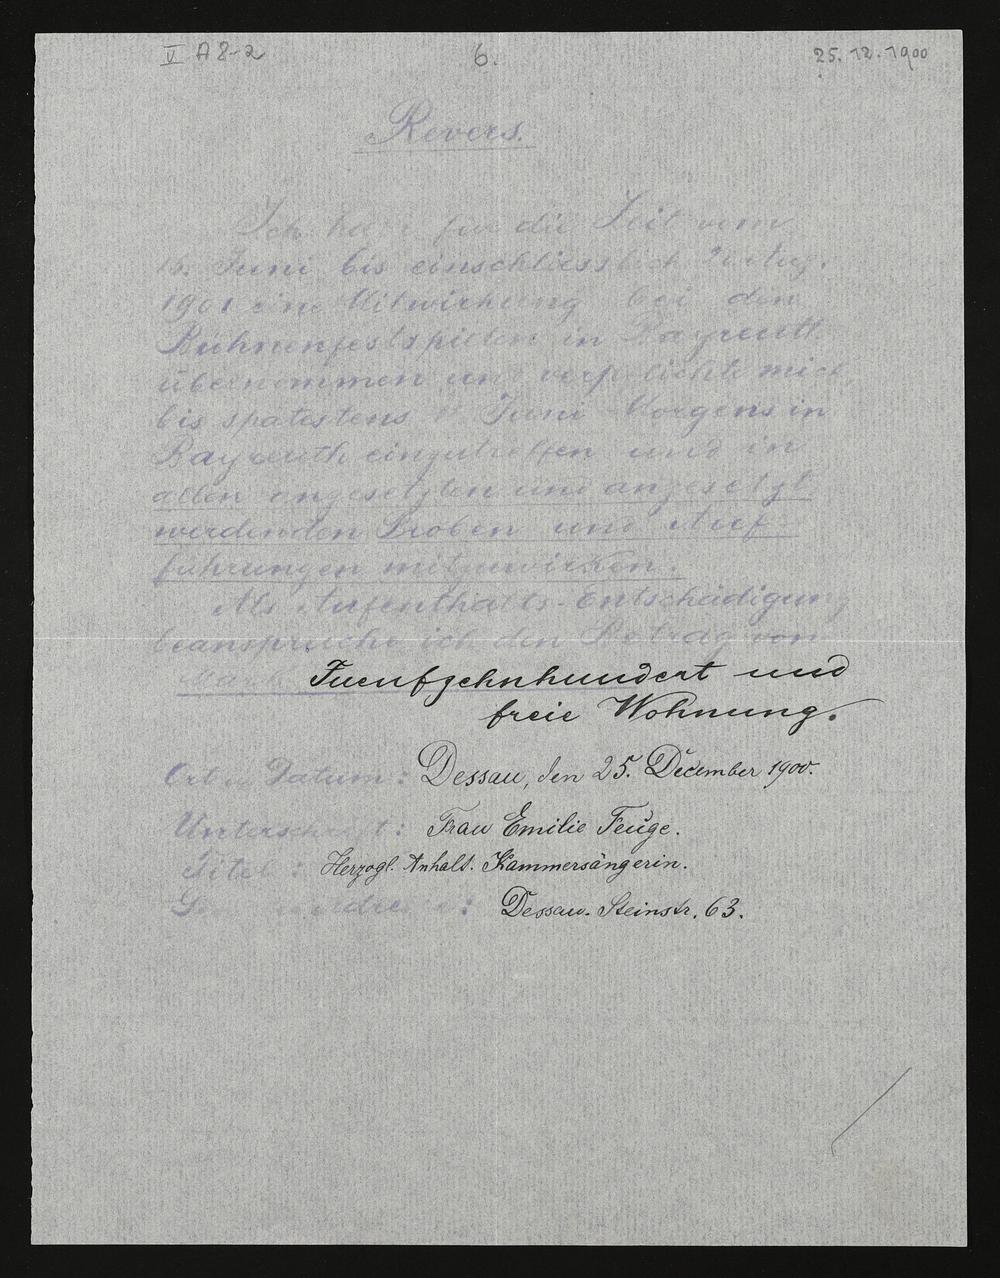 V A 8-2 6. 25.12.1900
Revers.
Ich habe für die Zeit vom
15. Juni bis einschliesslich Aug.
1901 eine Mitwirkung bei den
Bühnenfestspielen in Bayreuth
übernommen und verpflichte mich,
bis spätestens Juni Morgens in
Bayreuth einzutreffen und in
allen angesetzten und angesetzt
werdenden Proben und Auf-
führungen mitzuwirken.
Als Aufenthalts-Entschädigung
beanspruche ich den Betrag von
Mark Fuenfzehnhundert und
freie Wohnung.
Ort u Datum: Dessau, den 25. December 1900.
Unterschrift: Frau Emilie Feuge.
Titel: Herzogl. Anhalt. Kammersängerin.
Dessau. Steinstr. 63.